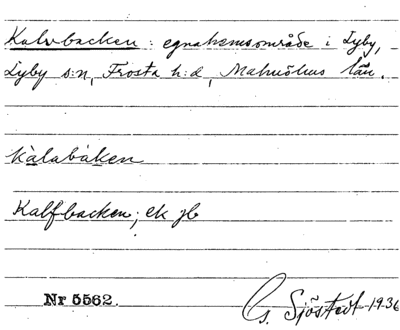 Kalvbacken: egnahemsområde i Lyby,
Lyby s:n, Frosta h:d, Malmöhus län.
kàlabàken
Kalfbacken; ek jb
Nr 5562.
G. Sjöstedt 1936